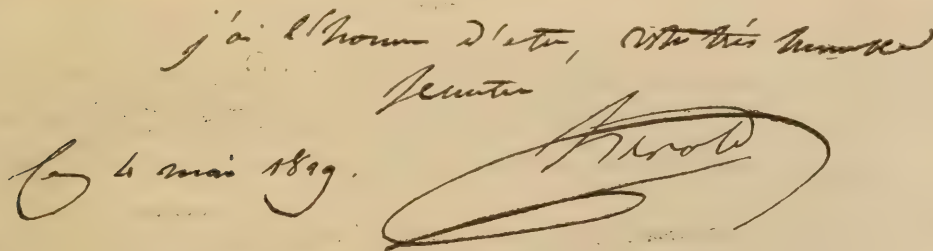 j'ai l'honneur d'etre, votre très humble
serviteur
Ce 4 mai 1829.
Herold